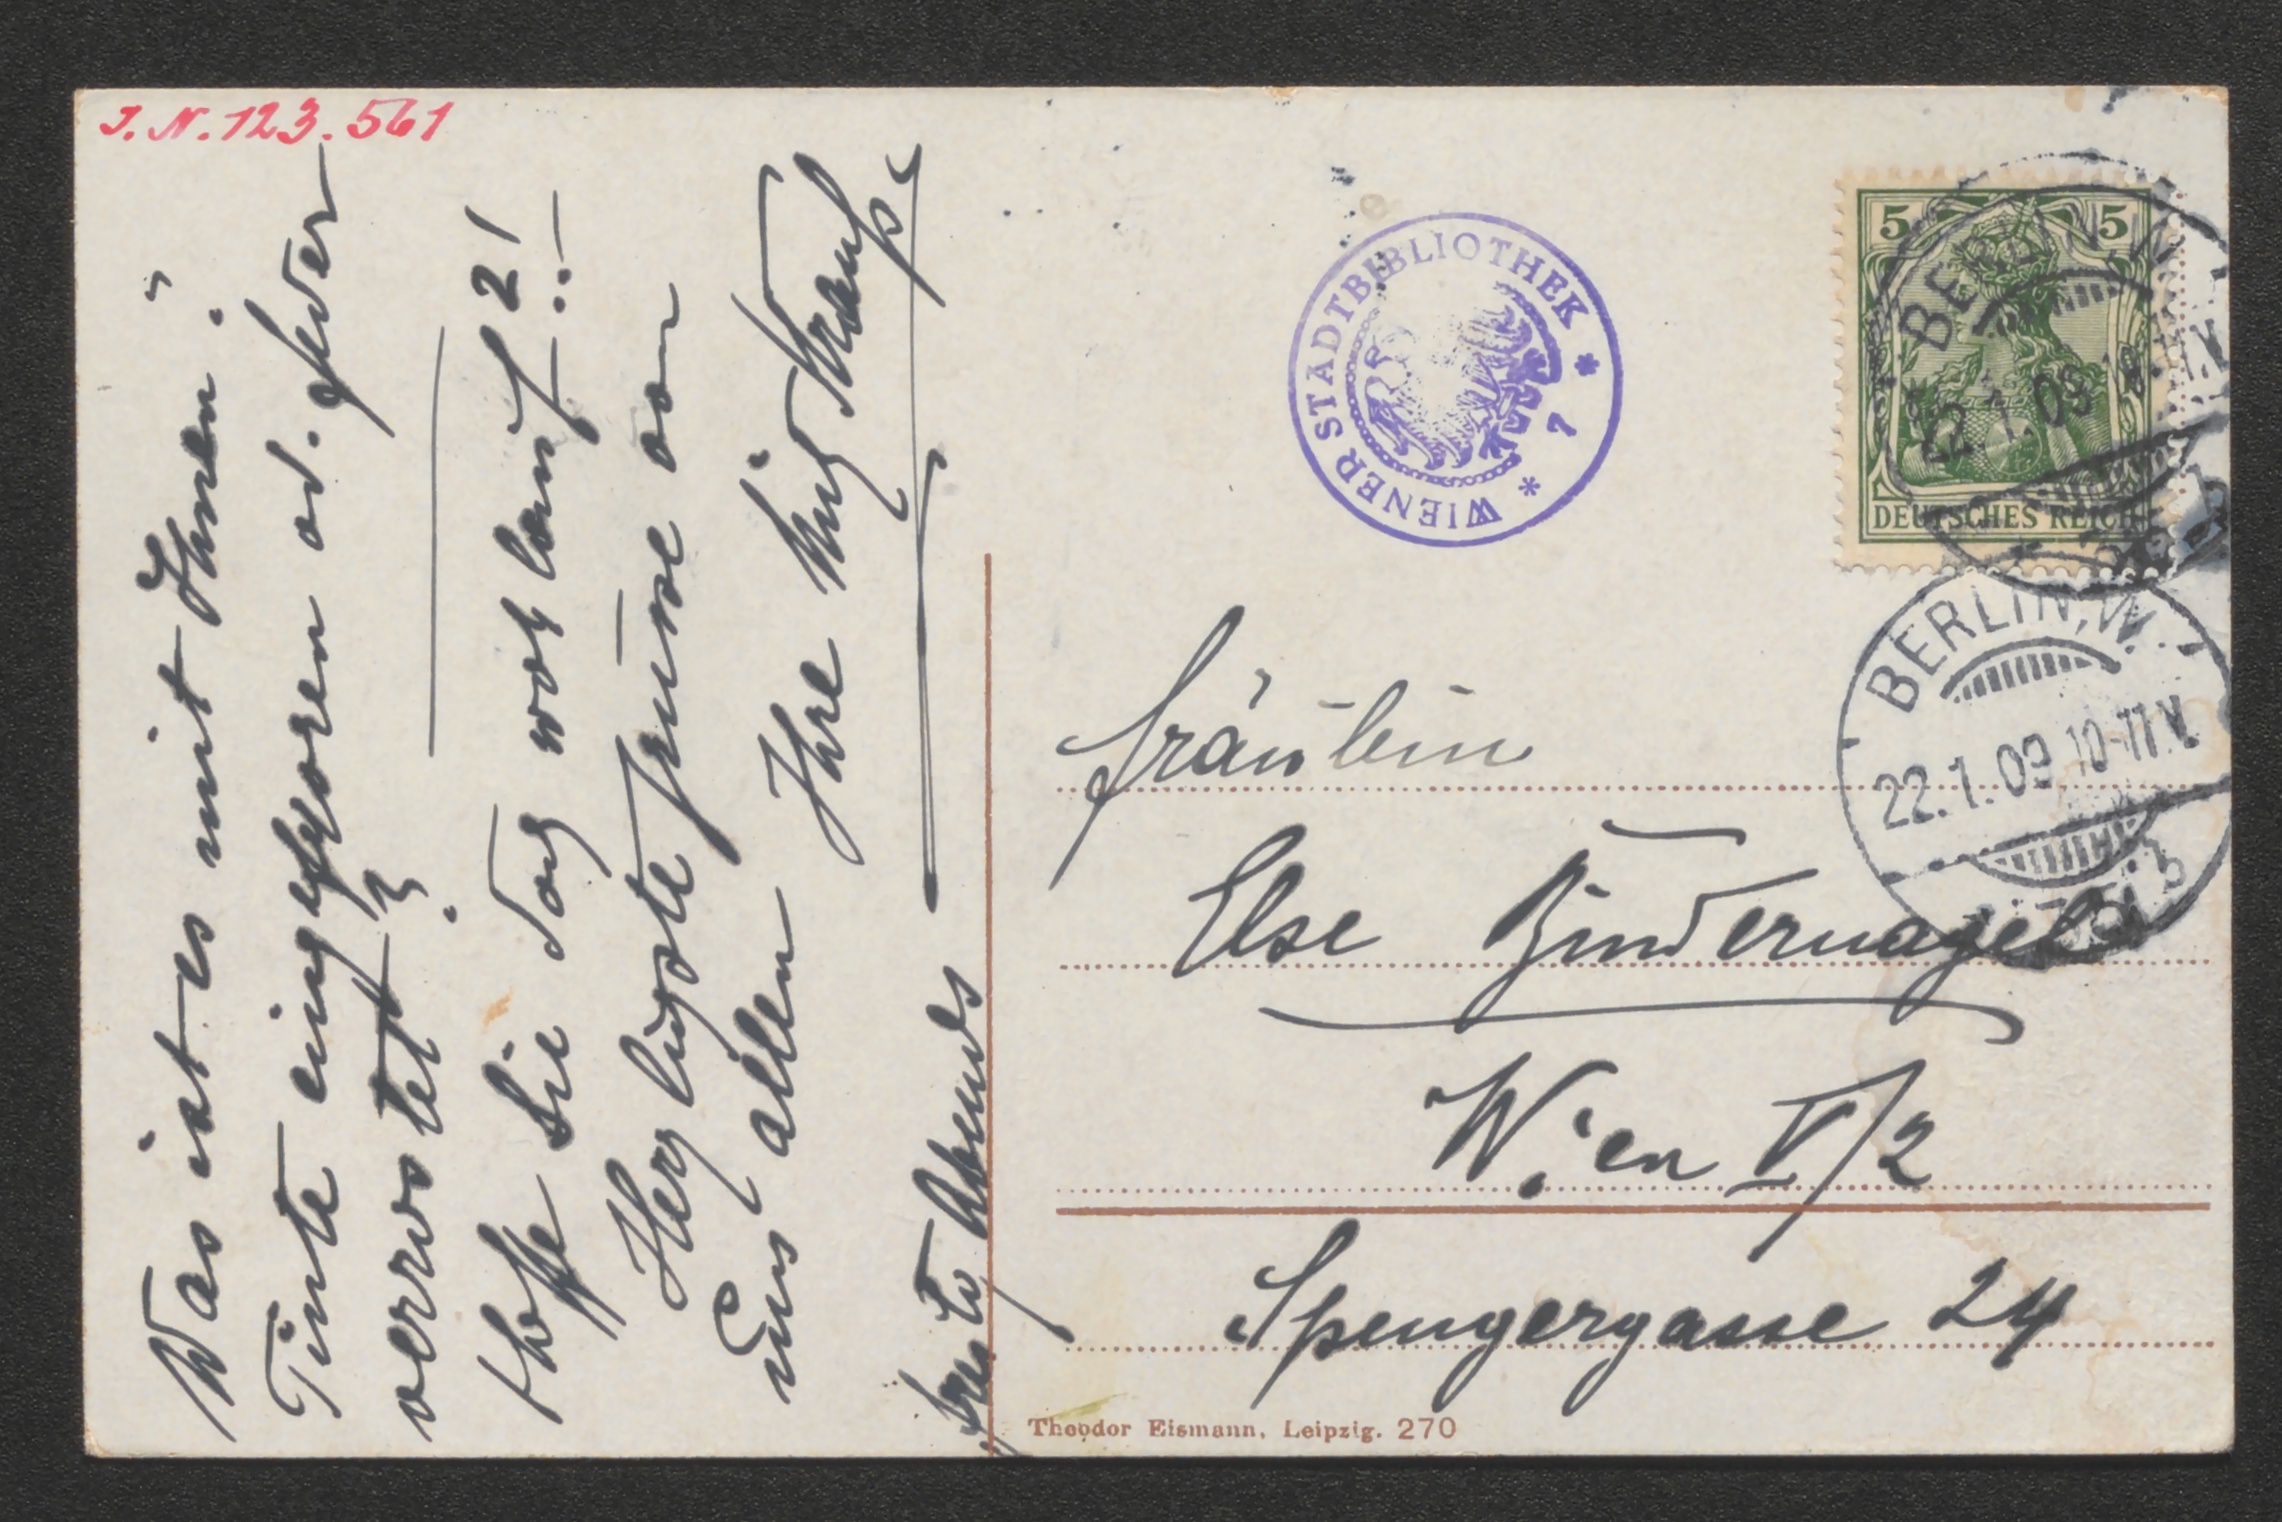 J. N. 123.561
Was ist es mit Ihnen?
Tinte eingefroren od. Feder
verrostet?
Hoffe Sie Tag wohlauf 21
Herzlichste Grüsse von
uns allen Ihre Mizi Strauß
Abends
WIENER STADTBIBLIOTHEK * 7 *
5 5
DEUTSCHES REICH
BERLIN, W.
22.1.09 10-11 V.
BERLIN, W.
22.1.09 10-11 V.
Fräulein
Else Bindernagel
Wien V/2
Spengergasse 24
Theodor Eismann, Leipzig. 270